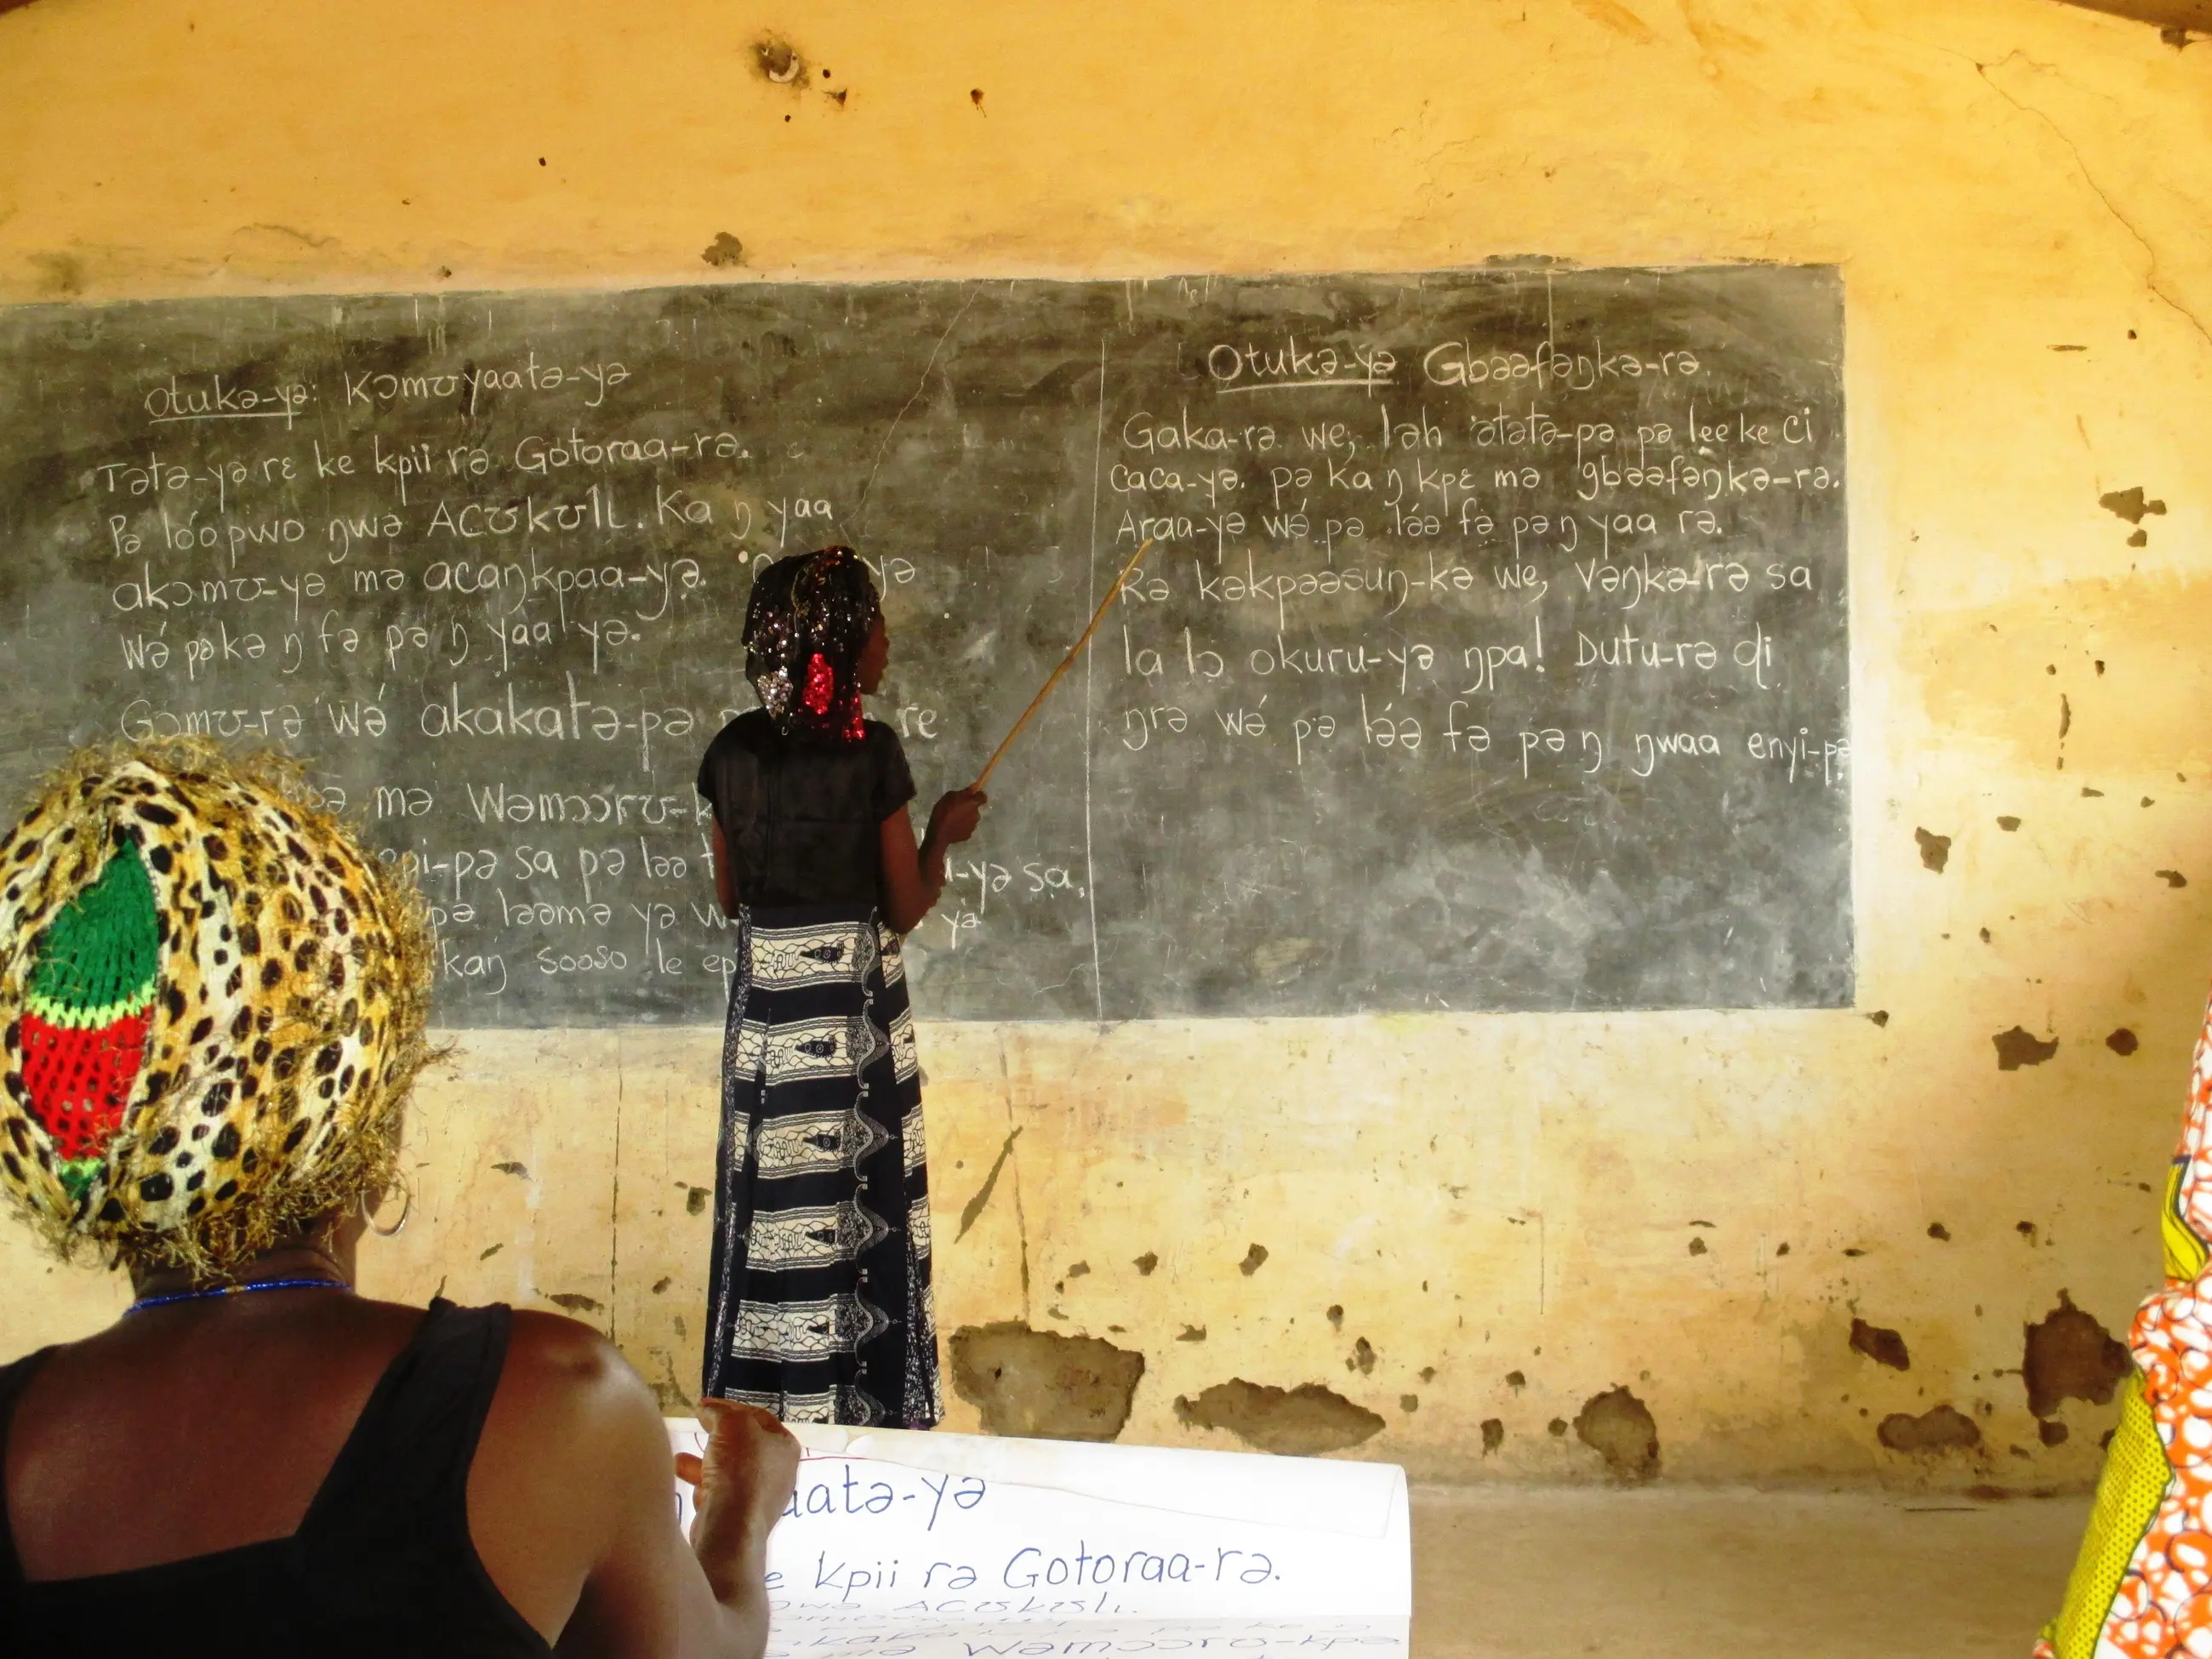 Otukə-yə: Kɔmʊyaatə-yə
Tətə-yə rɛ ke kpii rə Gotoraa-rə.
Pə lóopwo ŋwə Acʊkʊlɩ. Ka ŋ yaa
akɔmʊ-yə mə acaŋkpaa-yə.
Wə́ pəkə ŋ fə pə ŋ yaa yə.
Gɔmʊ-rə wə́ akakatə-pə re
mə Wəmɔɔrʊ-
sa pə ləə -yə sa,
pə ləəmə yə yə
kaŋ sooso le
Otukə-yə Gbəəfəŋkə-rə.
Gaka-rə we, ləh atətə-pə pə lee ke ci
caca-yə. pə ka ŋ kpɛ mə gbəəfəŋkə-rə.
Araa-yə wə́ pə lə́ə fə pə ŋ yaa rə.
Rə kəkpəəsuŋ-kə we, Vəŋkə-rə sa
la lɔ okuru-yə ŋpa! Dutu-rə ɖi
ŋrə wə́ pə lə́ə fə pə ŋ ŋwaa enyi-pə
aatə-yə
kpii rə Gotoraa-rə.
Acʊkʊlɩ.
Wəmɔɔrʊ-kpə